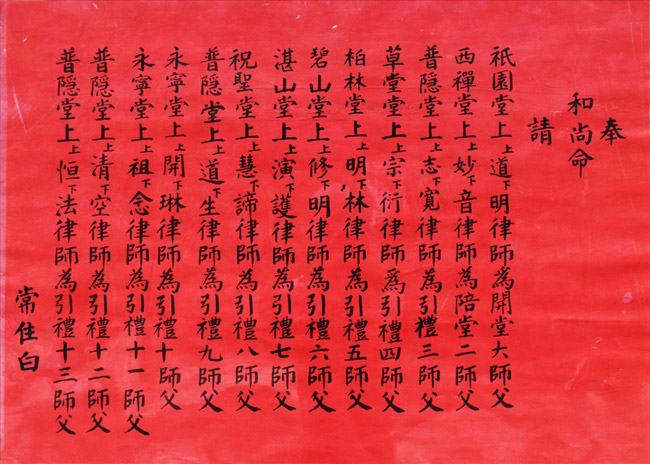 奉
和尚命
請
祇園堂上上道下明律師為開堂大師父
西禪堂上上妙下音律師為陪堂二師父
普隱堂上上志下寬律師為引禮三師父
草堂堂上上宗下衍律師爲引禮四師父
柏林堂上上明下林律師為引禮五師父
碧山堂上上修下明律師為引禮六師父
湛山堂上上演下護律師為引禮七師父
祝聖堂上上慧下諦律師為引禮八師父
普隱堂上上道下生律師為引禮九師父
永寧堂上上開下琳律師為引禮十師父
永寧堂上上祖下念律師為引禮十一師父
普隱堂上上清下空律師為引禮十二師父
普隱堂上上恒下法律師為引禮十三師父
常住白